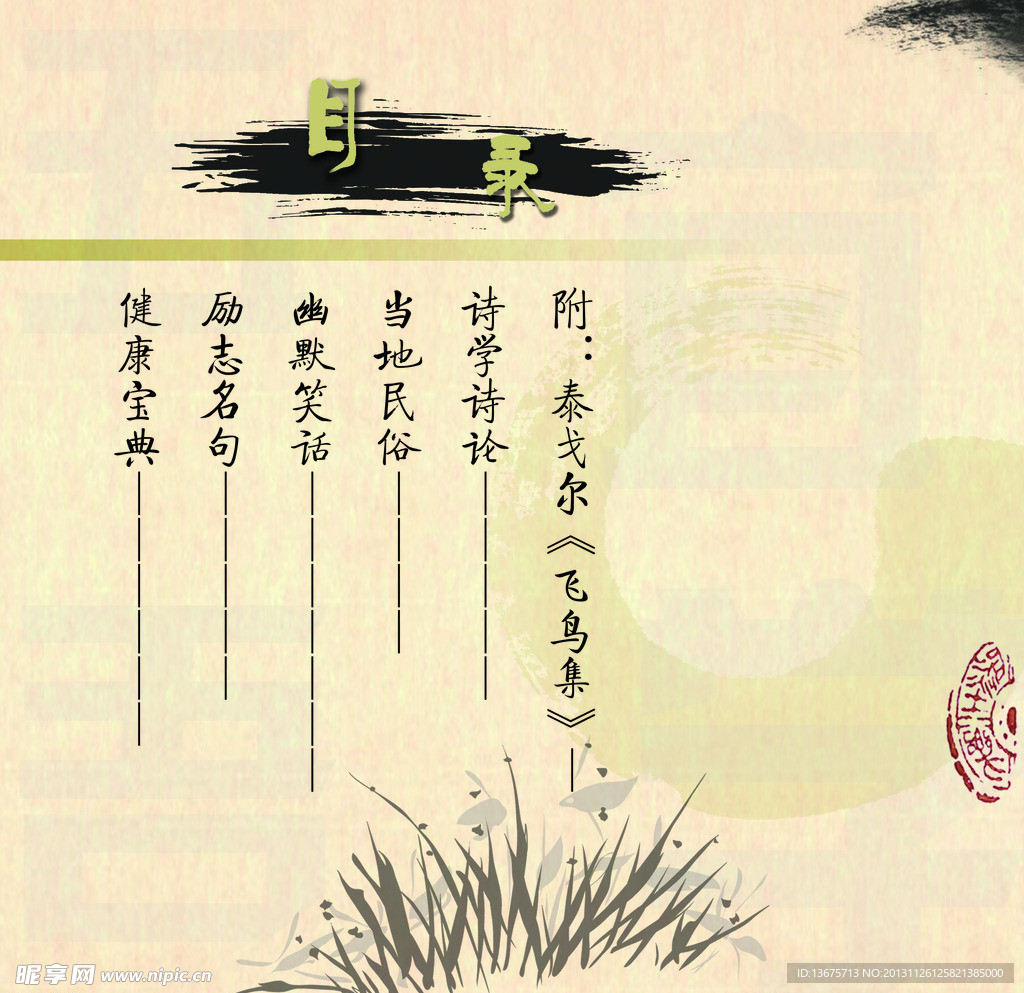 目录
附：泰戈尔《飞鸟集》
诗学诗论
当地民俗
幽默笑话
励志名句
健康宝典
昵享网 www.nipic.cn
ID:13675713 NO:20131126125821385000